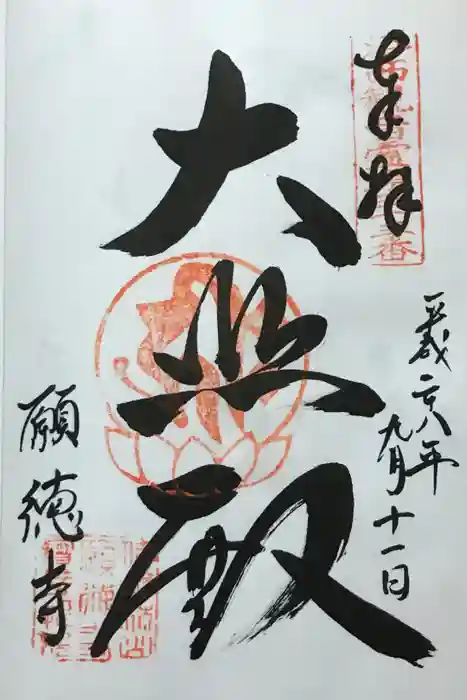 奉拝
平成二八年
九月十一日
大悲殿
願徳寺